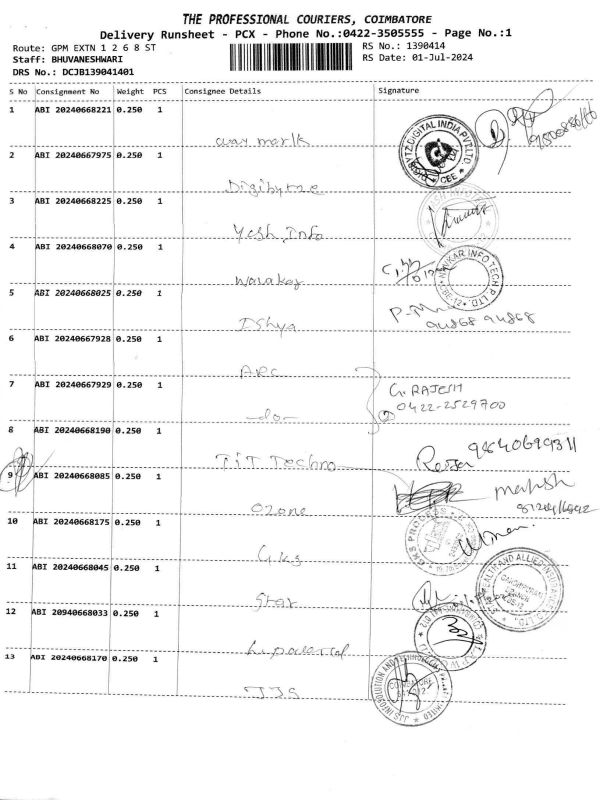 THE PROFESSIONAL COURIERS, COIMBATORE
Delivery Runsheet - PCX - Phone No.:0422-3505555 - Page No.:1
Route: GPM EXTN 1 2 6 8 ST
RS No.: 1390414
Staff: BHUVANESHWARI
RS Date: 01-Jul-2024
DRS No.: DCJB139041401
S No Consignment No Weight PCS Consignee Details Signature
1 ABI 20240668221 0.250 1
way mark
2 ABI 20240667975 0.250 1
VTZ DIGITAL INDIA PVT.LTD.
3 ABI 20240668225 0.250 1
Yesh Info
4 ABI 20240668070 0.250 1
NAVKAR INFO TECH P. LTD.
CBE-12
5 ABI 20240668025 0.250 1
Ishya
94868 94868
6 ABI 20240667928 0.250 1
ARC
7 ABI 20240667929 0.250 1
G. RAJESH
0422-2529700
-do-
8 ABI 20240668190 0.250 1
TIT Techno
9 ABI 20240668085 0.250 1
Ozone
10 ABI 20240668175 0.250 1
GKS
11 ABI 20240668045 0.250 1
Star
HEALTH AND ALLIED INSURANCE
12 ABI 20940668033 0.250 1
13 ABI 20240668170 0.250 1
JJS
COIMBATORE